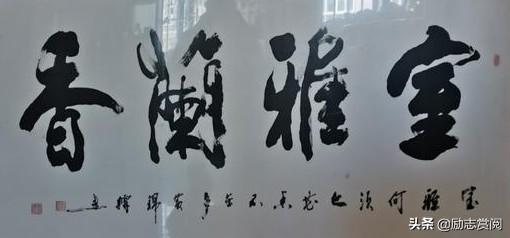 室雅蘭香
室雅何須大花香不在多
头条 @励志赏阅